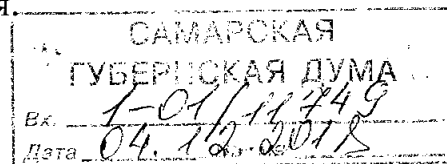 я.
САМАРСКАЯ
ГУБЕРНСКАЯ ДУМА
Вх. 1-01/11749
Дата 04.12.2018